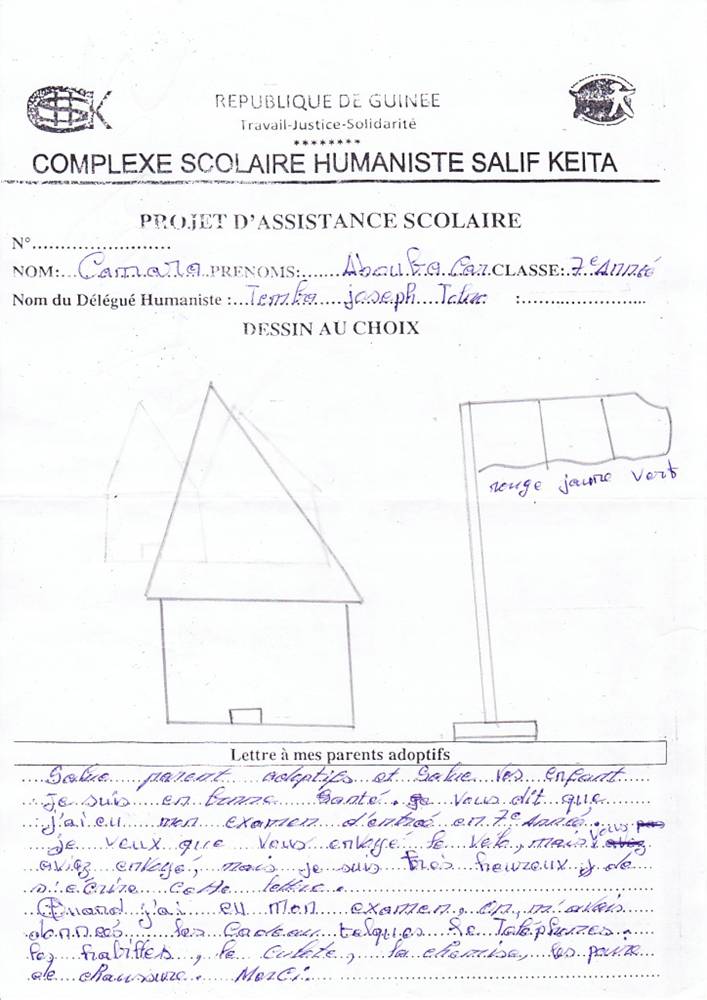 CSHSK
REPUBLIQUE DE GUINEE
Travail-Justice-Solidarité
********
COMPLEXE SCOLAIRE HUMANISTE SALIF KEITA
PROJET D'ASSISTANCE SCOLAIRE
N°........................
NOM:...Camara..PRENOMS:.......Aboubacar.CLASSE:.7e Année
Nom du Délégué Humaniste :..Temba....joseph....:......................
DESSIN AU CHOIX
rouge jaune vert
Lettre à mes parents adoptifs
Salue parent adoptifs et Salue vos enfant
je suis en bonne Santé. je vous dit que
j'ai eu mon examen d'entrée en 7e Année.
je veux que vous envoye le velo, mais vous pas
aviez envoyé, mais je suis très heureux de
s'ecrire cette lettre.
Quand j'ai eu mon examen, on m'avais
donnés les Cadeau telques le Téléphones.
les habilles, la culote, la chemise, les paire
de chaussure. Merci.